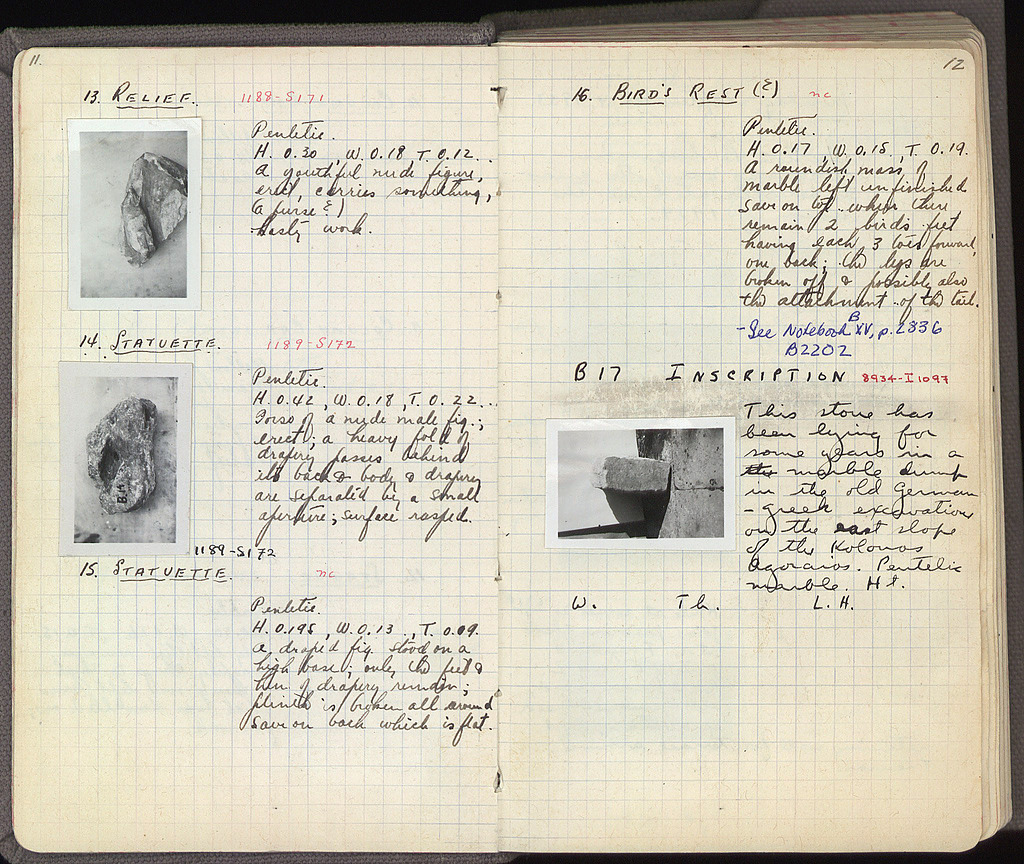 11.
13. RELIEF. 1188-S171
Pentelic.
H. 0.30, W. 0.18, T. 0.12..
A youthful nude figure,
erect, carries something,
(a purse?)
hasty work.
14. STATUETTE. 1189-S172
Pentelic.
H. 0.42, W. 0.18, T. 0.22...
Torso of a nude male fig.;
erect; a heavy fold of
drapery passes behind
its back & body & drapery
are separated by a small
aperture; surface rasped.
B14
1189-S172
15. STATUETTE. nc
Pentelic.
H. 0.195, W. 0.13, T. 0.09.
A draped fig. stood on a
high base; only the feet &
hem of drapery remain;
plinth is broken all around
save on back which is flat.
12
16. BIRD'S REST (?) nc
Pentelic.
H. 0.17, W. 0.15, T. 0.19.
A roundish mass of
marble left unfinished
save on top where there
remain 2 birds feet
having each 3 toes forward,
one back; the legs are
broken off & possibly also
the attachment of the tail.
- See Notebook B XV, p. 2836
B2202
B 17 INSCRIPTION 8934-I 1097
This stone has
been lying for
some years in a
the marble dump
in the old German
- greek excavation
on the east slope
of the Kolonos
Agoraios. Pentelic
marble. Ht.
W. Th. L.H.